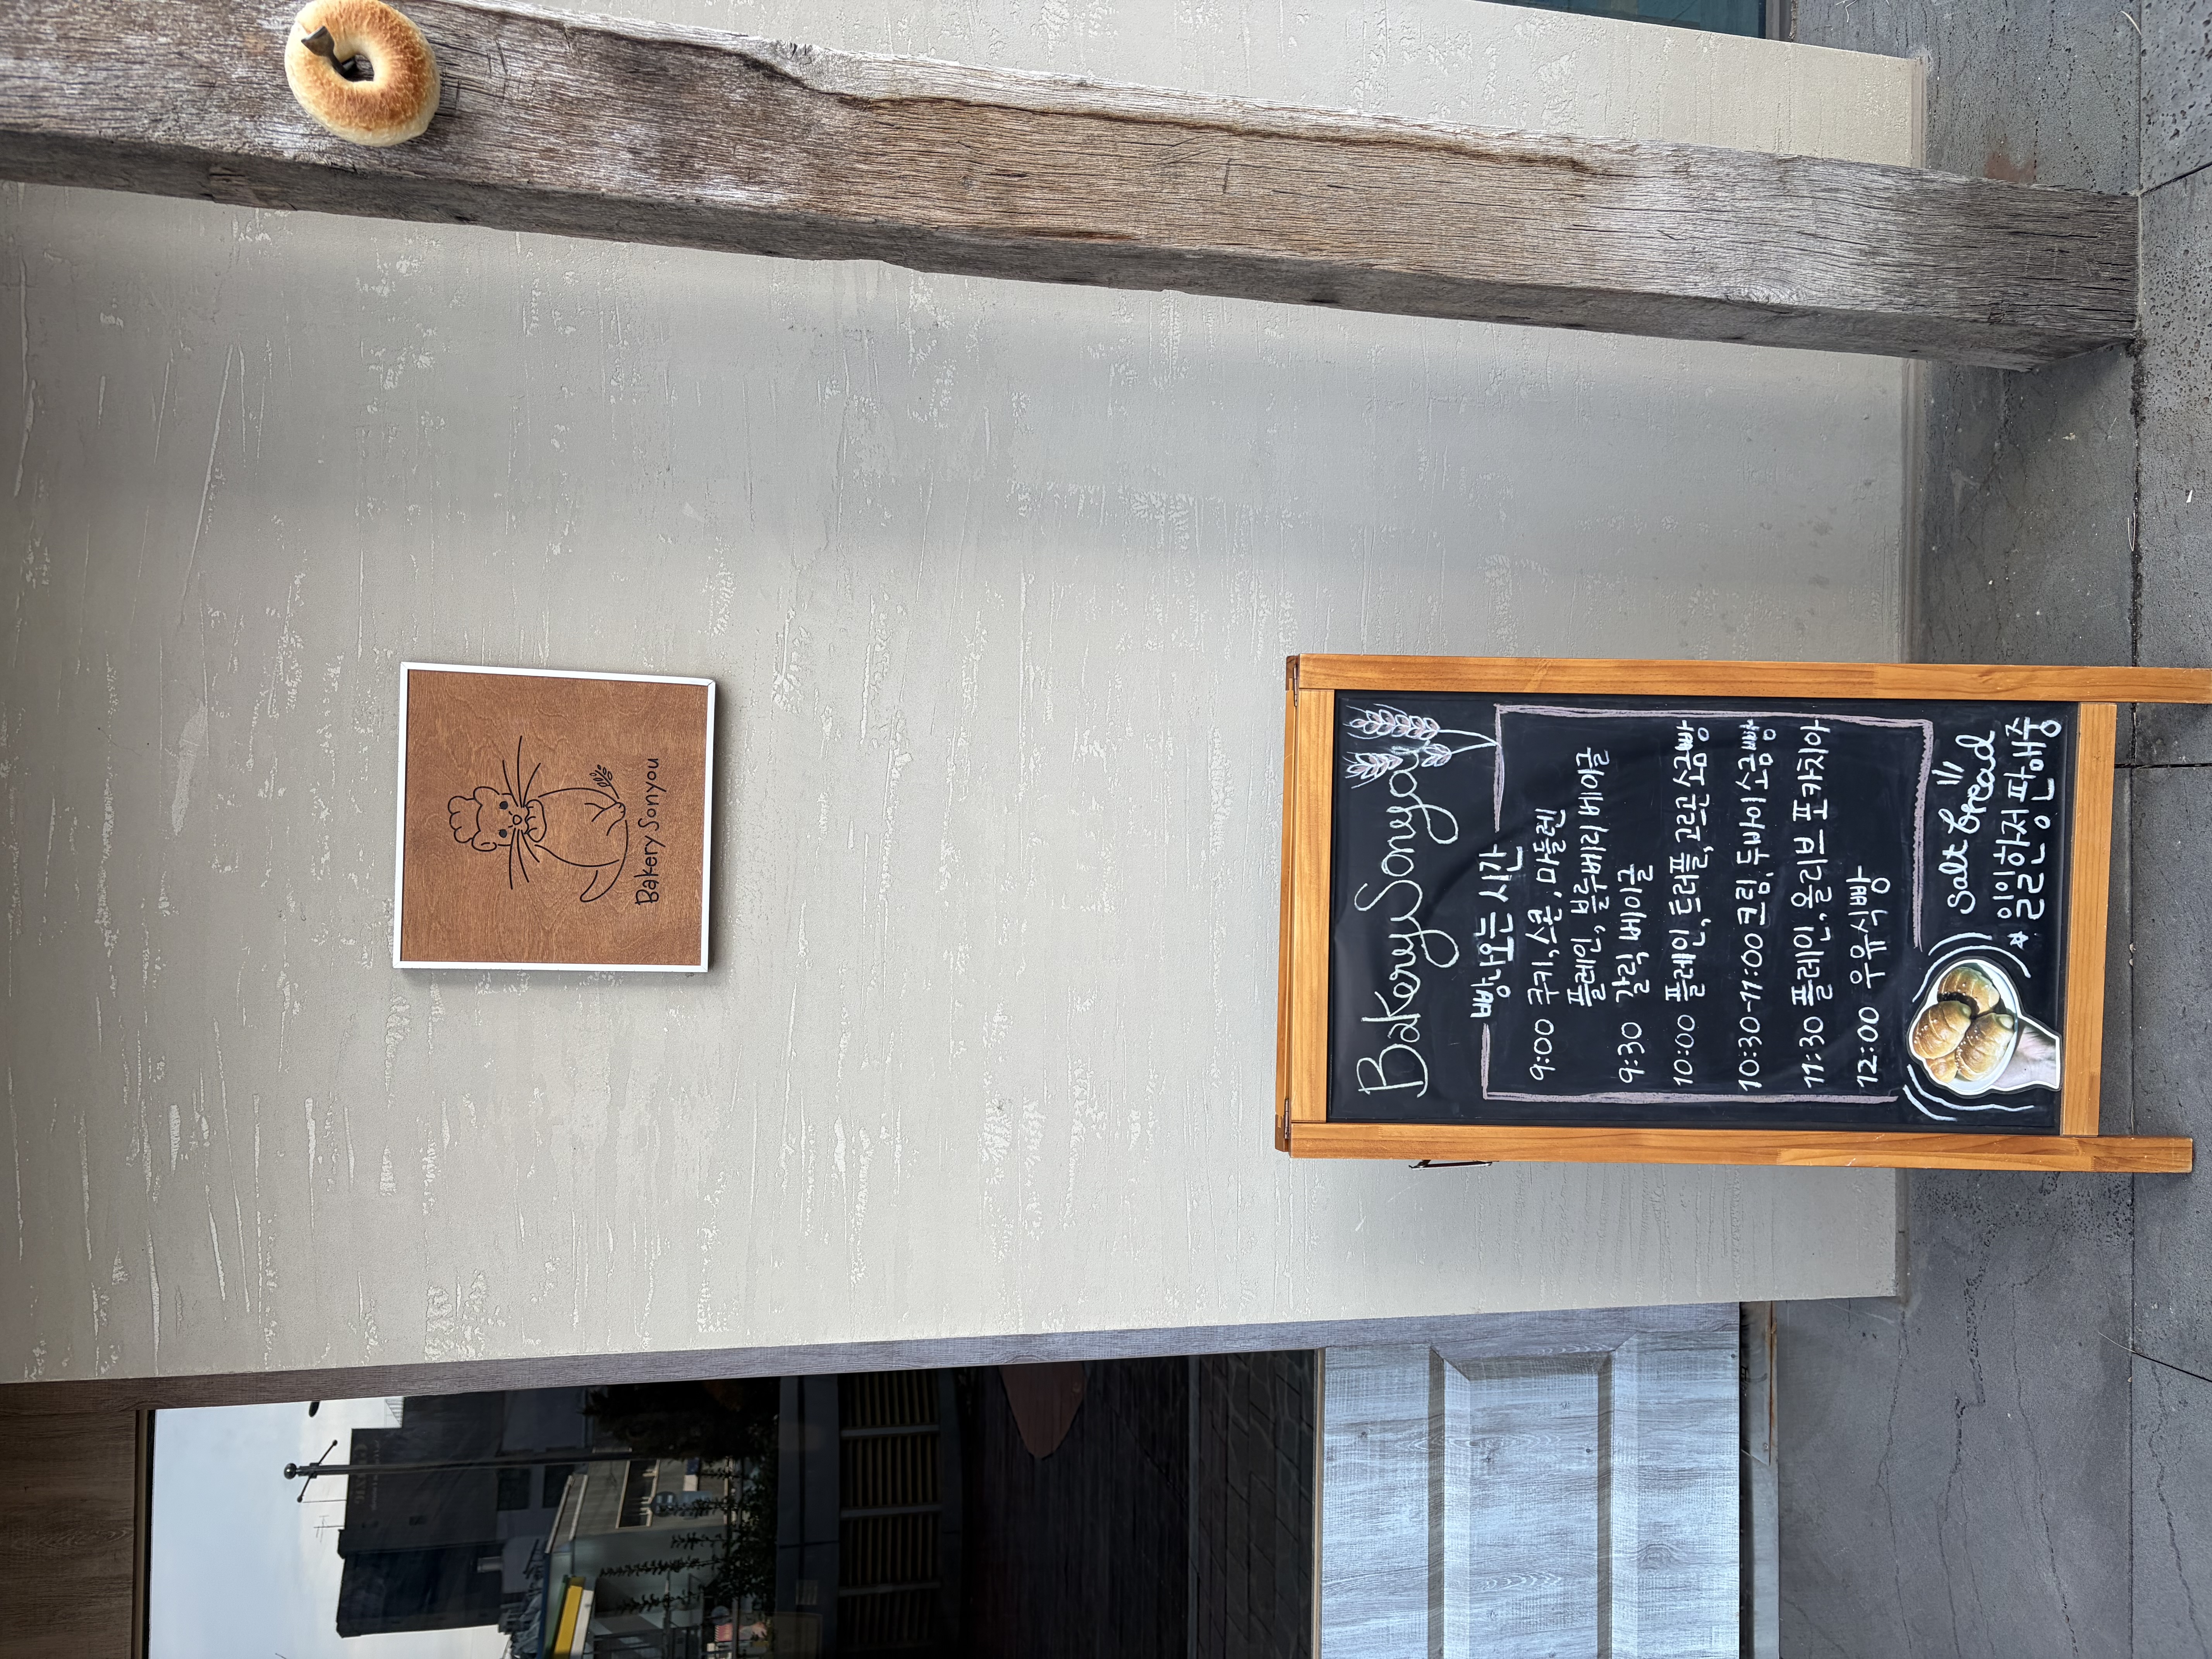 Bakery Sonyou
Bakery Sonyou
빵나오는시간
9:00 쿠키, 스콘, 마들렌
플레인, 블루베리베이글
9:30 갈릭 베이글
10:00 플레인, 트러플, 고르곤 소금빵
10:30-11:00 크림, 두바이 소금빵
11:30 플레인, 올리브 포카치아
12:00 우유식빵
Salt bread
일일한정판매중